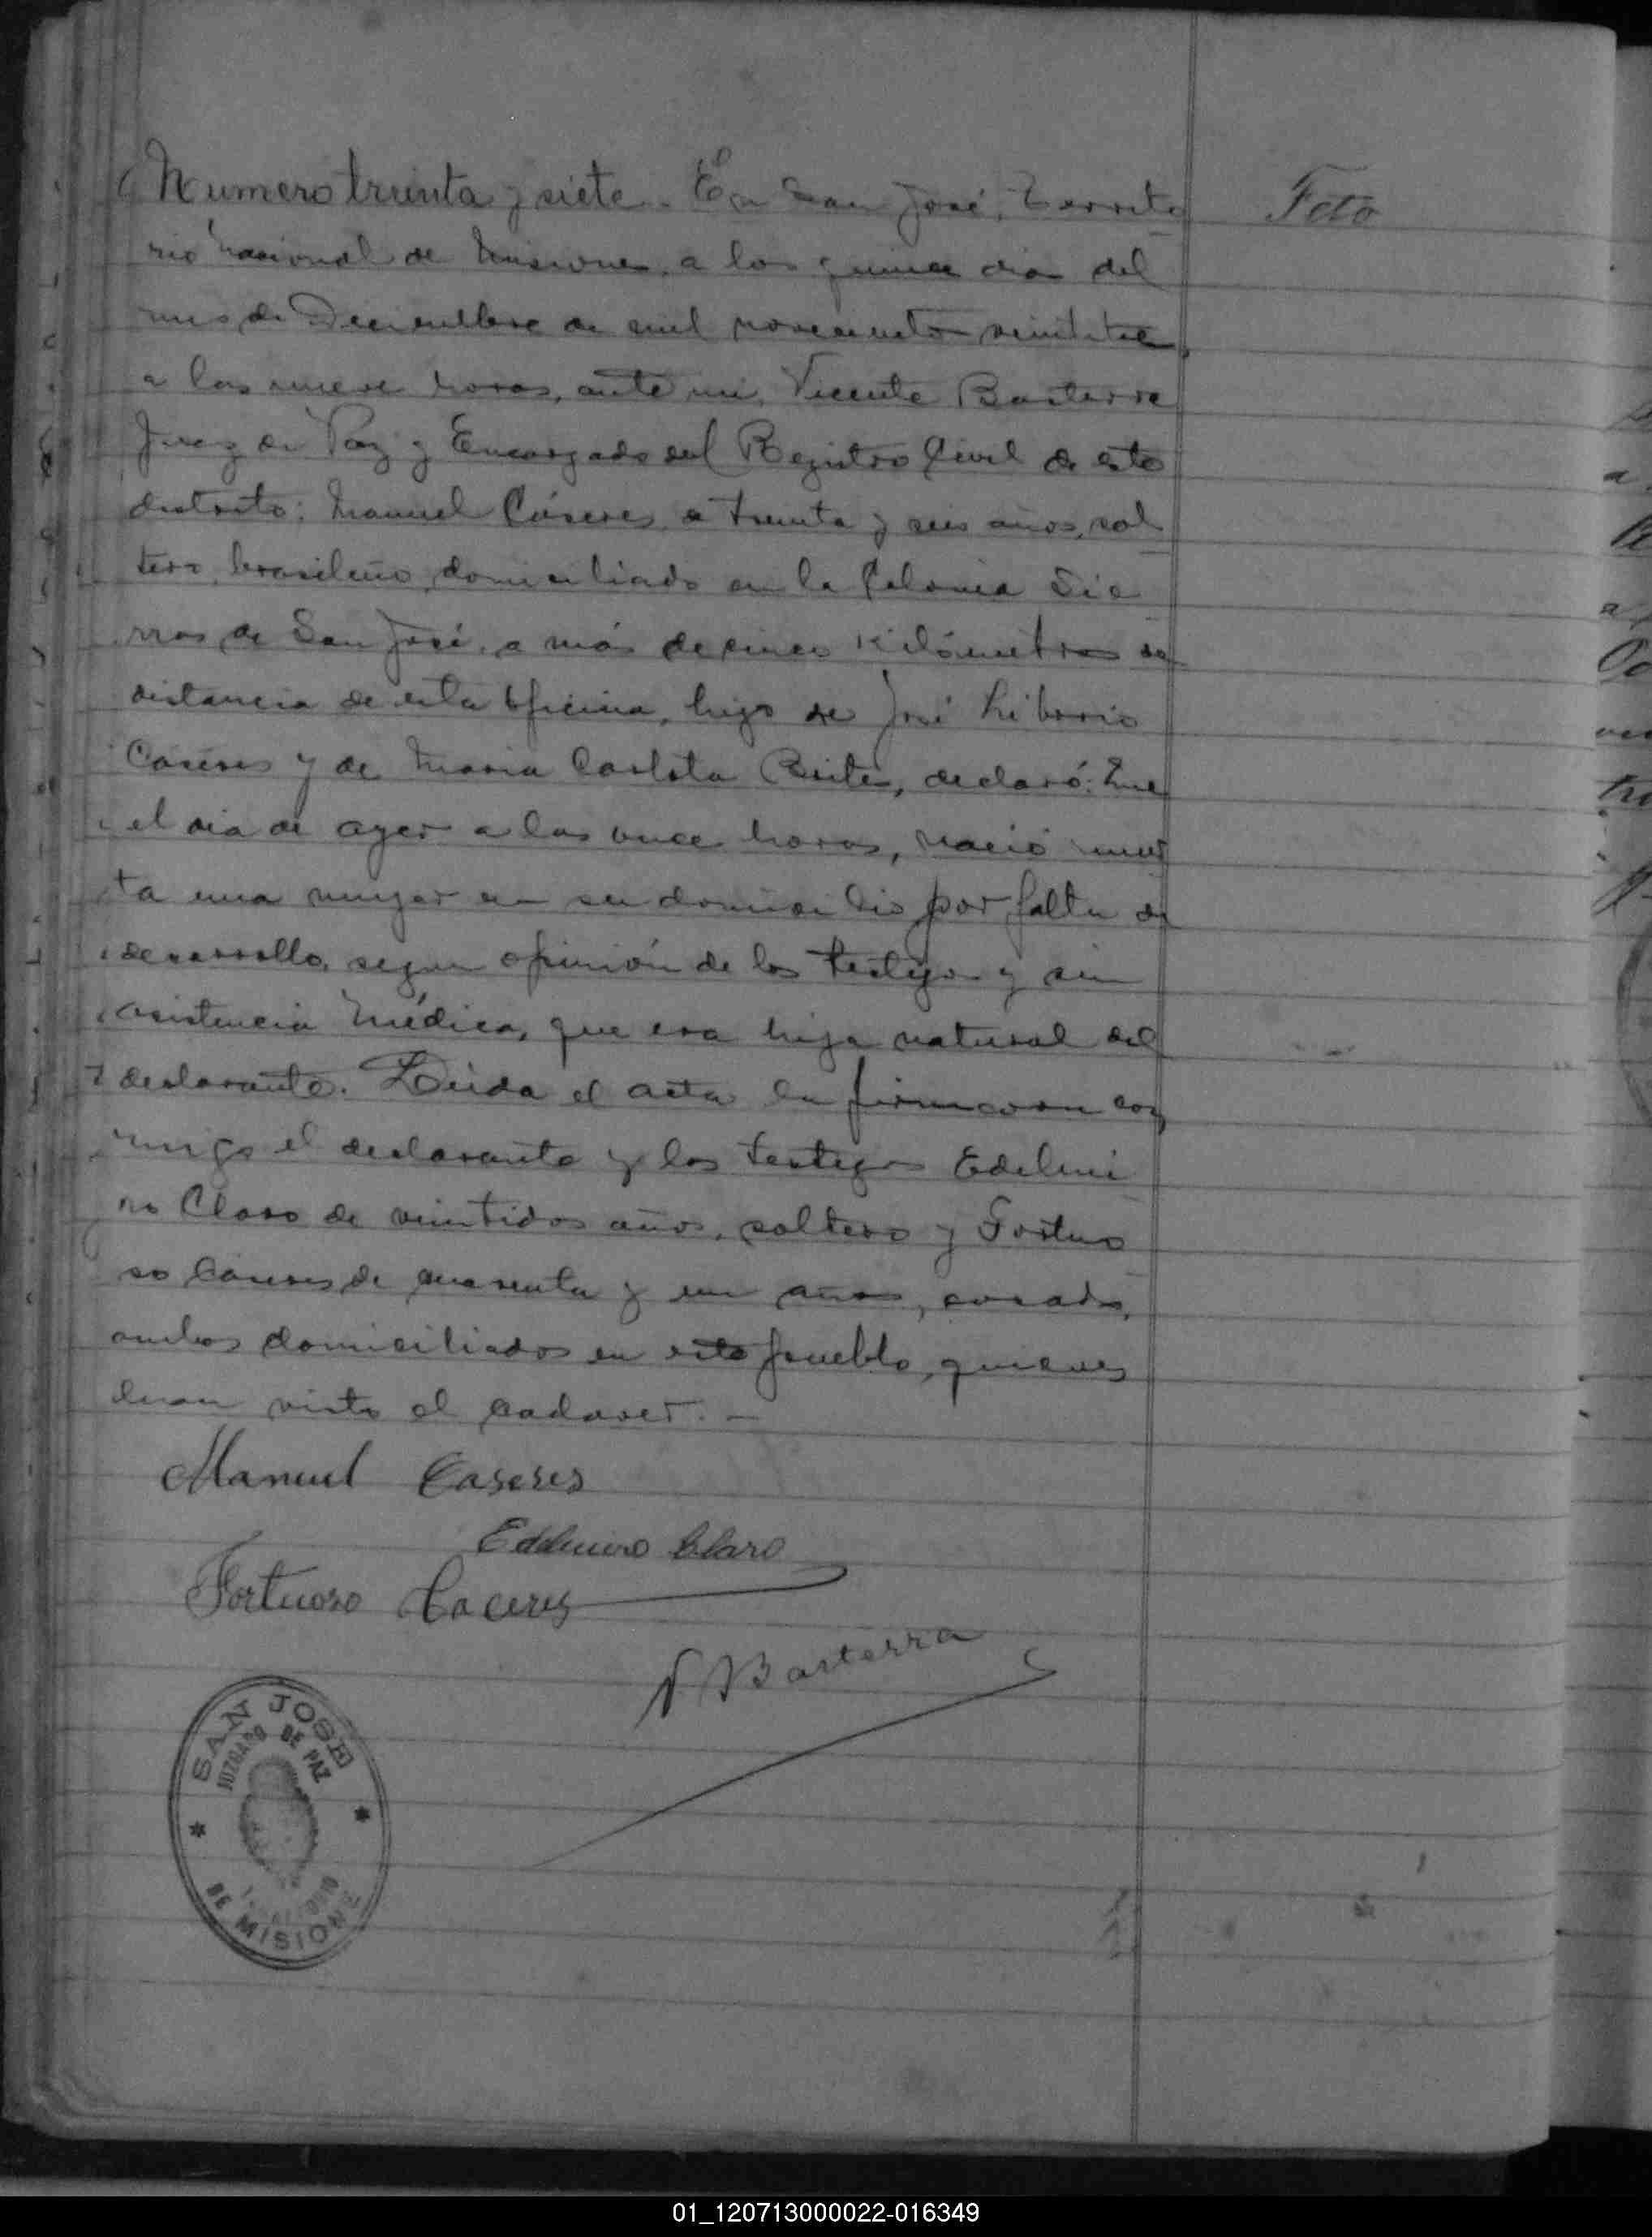 Numero treinta y siete. En San José, Territo
Feto
rio nacional de Misiones, a los quince dias del
mes de Diciembre de mil novecientos veintitres
a las nueve horas, ante mi, Vicente Basterra
Juez de Paz y Encargado del Registro Civil de este
distrito; Manuel Cáseres de treinta y seis años, sol
tero, brasileño, domiciliado en la Colonia Sie
rras de San José, a más de cinco Kilómetros de
distancia de esta Oficina, hijo de José Liborio
Caseres y de Maria Carlota Brites, declaró: Que
el dia de ayer a las once horas, nació muer
ta una mujer en su domicilio por falta de
desarrollo, segun opinión de los testigos y sin
asistencia Médica, que era hija natural del
declarante. Leida el acta la firmaron con
migo el declarante y los testigos Edelmi
ro Claro de veintidos años, soltero y Fortuo
so Caseres de cuarenta y un años, casado,
ambos domiciliados en este pueblo, quienes
han visto el cadaver. —
Manuel Caseres
Edelmiro Claro
Fortuoso Caceres
V Basterra
SAN JOSE
JUZGADO DE PAZ
DE MISIONES
01_120713000022-016349